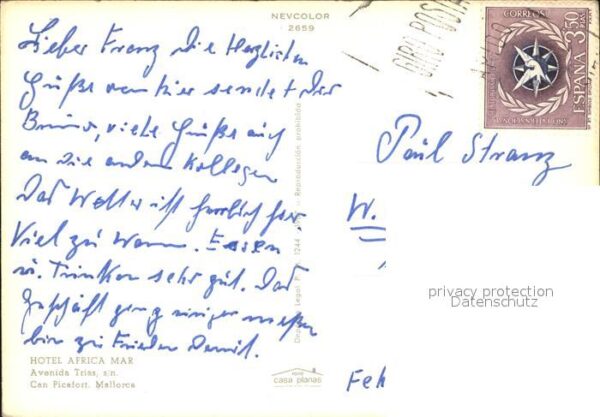 NEVCOLOR
2659
Lieber Franz die Herzlichsten
Grüße von hier sendet der
Bruno, viele Grüße auch
an die anderen Kollegen
Das Wetter ist herrlich hier
Viel zu Warm. Essen
u. Trinken sehr gut. Das
Geschäft geng einiger maßen
bin zu Frieden Damit.
HOTEL AFRICA MAR
Avenida Trias, s/n.
Can Picafort. Mallorca
Reproducción prohibida
casa planas
GIRO POSTA
CORREOS
3,50
PTAS
ESPAÑA
Paul Stranz
W.
privacy protection
Datenschutz
Feh